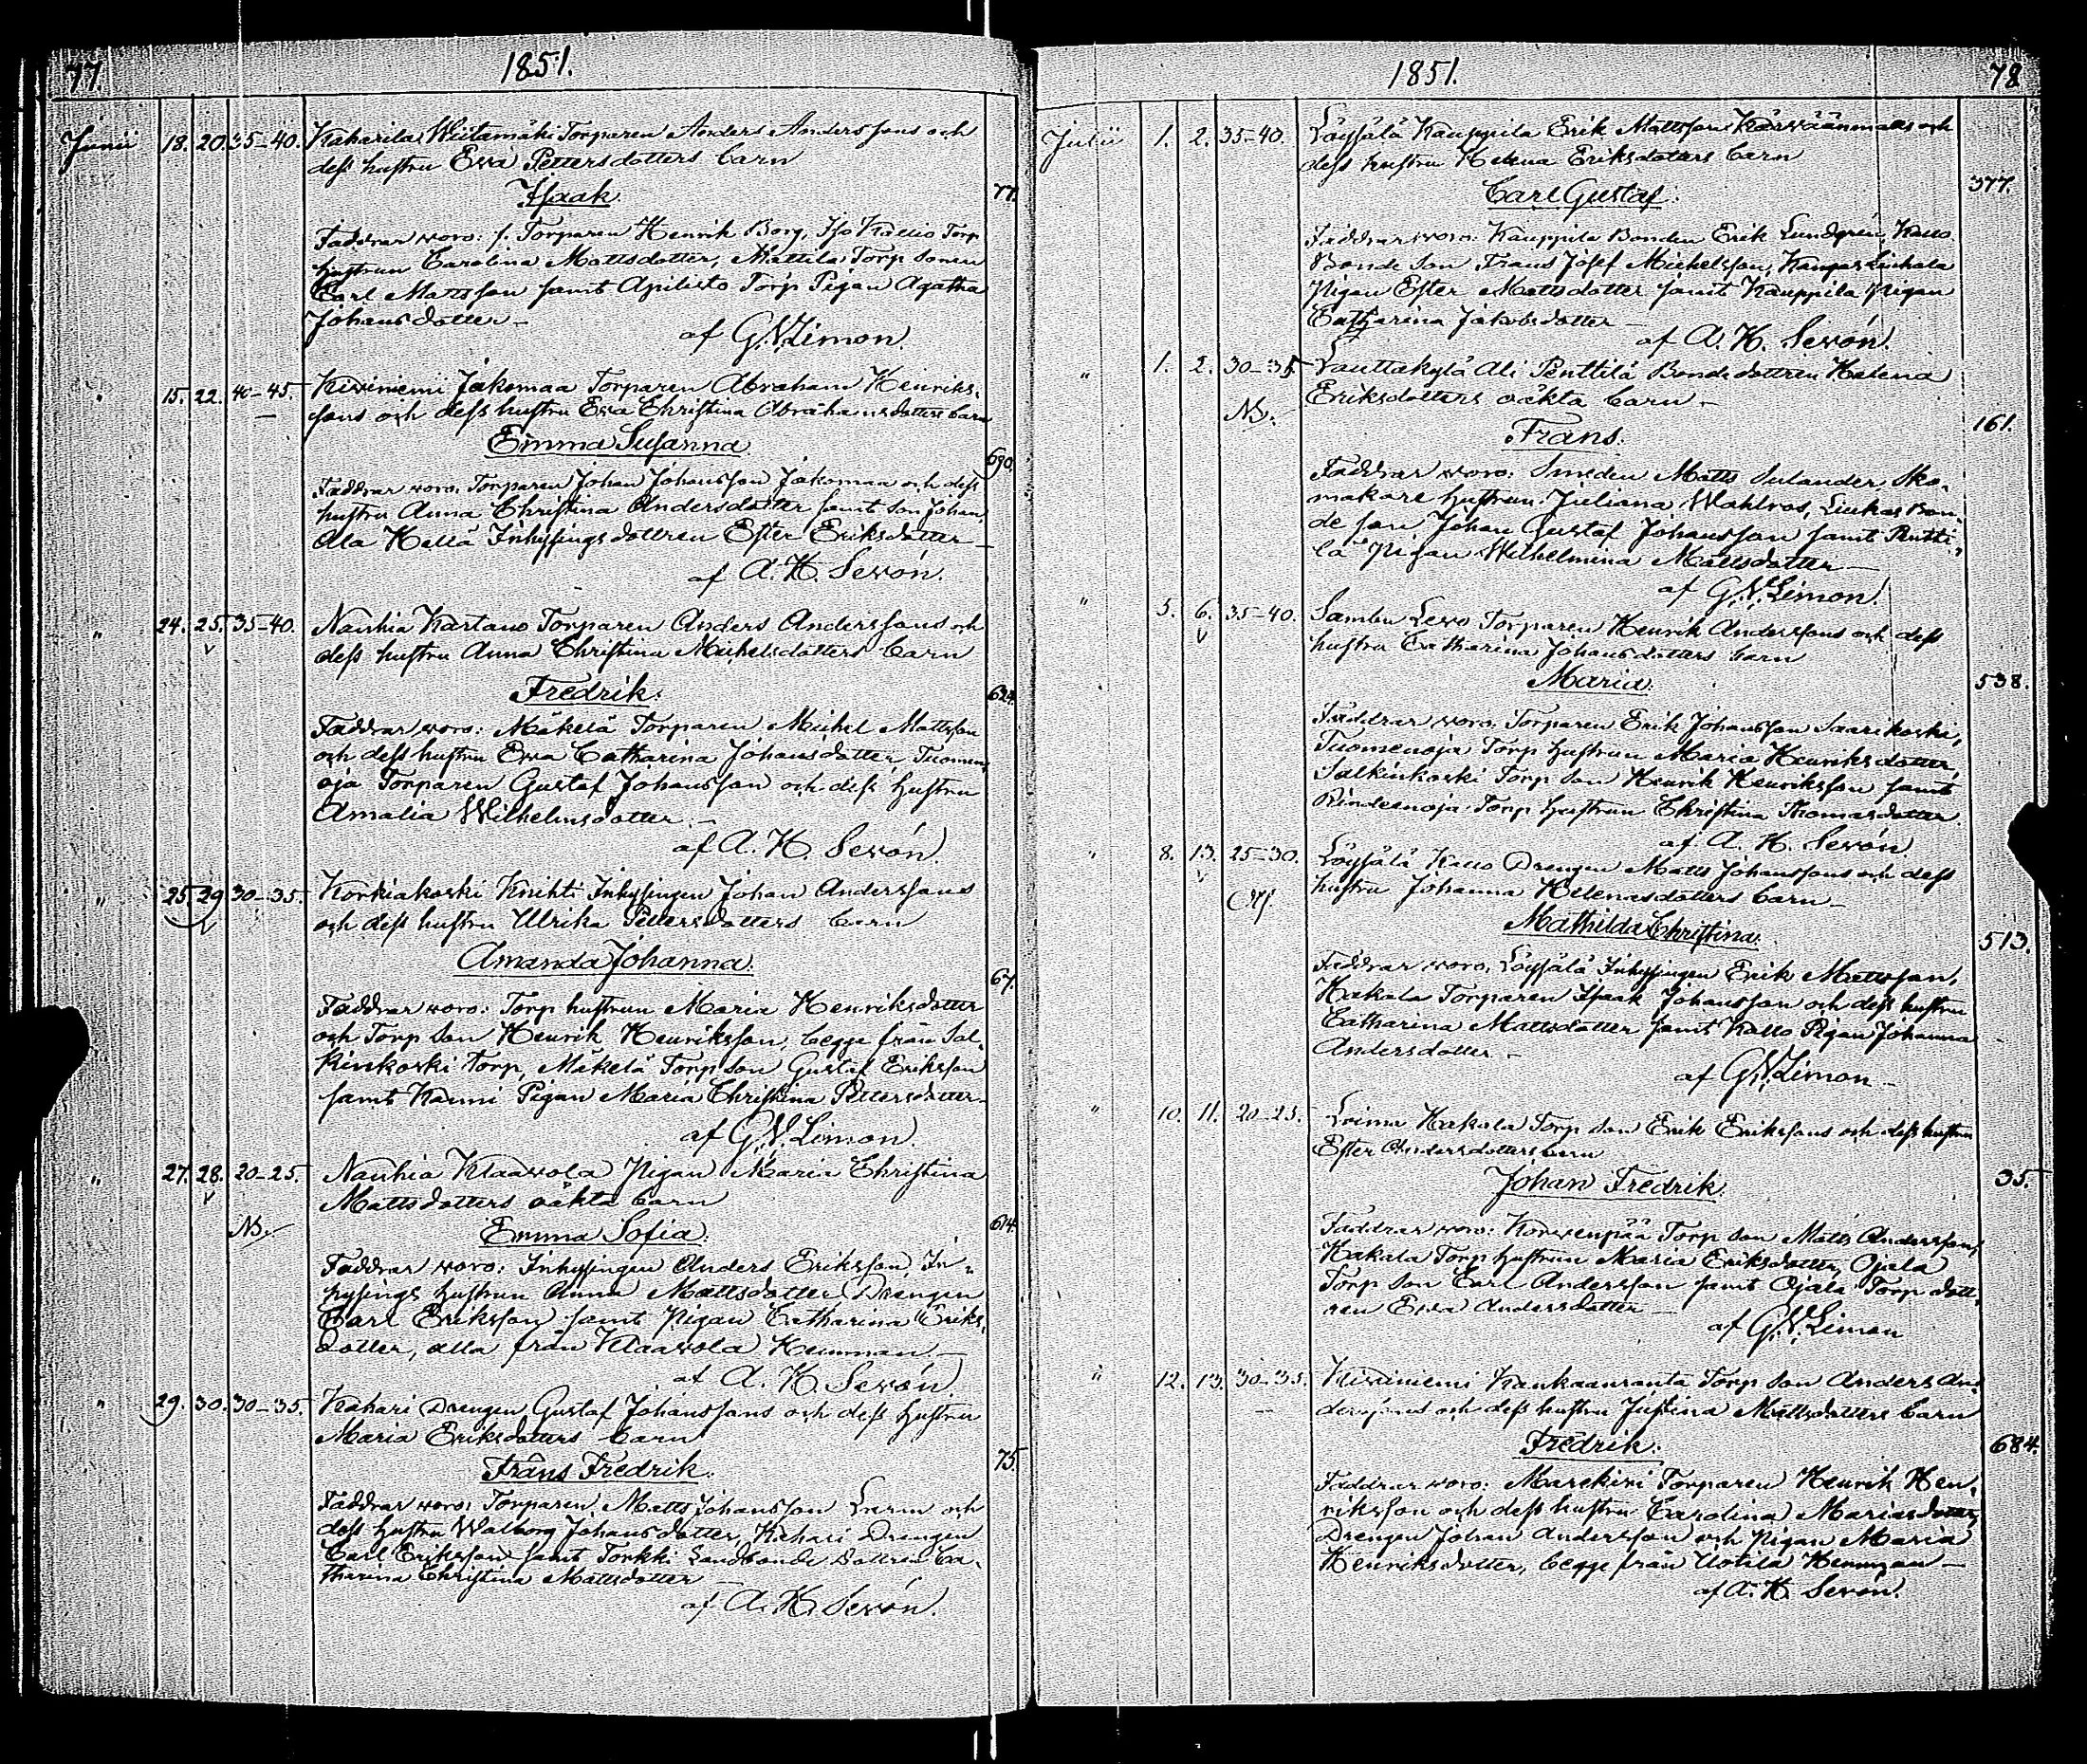 77.
1851.
Junii 18. 20. 35-40. Kaharila Wiitamäki Torparen Anders Anderssons och
dess hustru Eva Pettersdotters barn
Isaak. 77.
Faddrar woro: f. Torparen Henrik Borg, Iso Kallio Torp
hustrun Carolina Mattsdotter, Mattila Torp sonen
Carl Mattsson samt Torp Pigan Agatha
Johansdotter
af G.V. Limon.
" 15. 22. 40-45. Kiviniemi Jakomaa Torparen Abraham Henriks-
sons och dess hustru Eva Christina Abrahamsdotters barn
Emma Susanna 690.
Faddrar woro: Torparen Johan Johansson Jakomaa och dess
hustru Anna Christina Andersdotter samt son Johan,
Ala Kellä Inhysings dottren Ester Eriksdotter
af A. H. Sevón.
" 24. 25. 35-40. Nanhia Kartano Torparen Anders Anderssons och
dess hustru Anna Christina Michelsdotters barn
Fredrik. 624.
Faddrar woro: Mäkelä Torparen Michel Mattsson
och dess hustru Eva Catharina Johansdotter, Tuomen-
oja Torparen Gustaf Johansson och dess hustru
Amalia Wilhelmsdotter.
af A. H. Sevón.
" 25. 29. 30-35. Korkiakoski Knihti Inhysingen Johan Anderssons
och dess hustru Ulrika Pettersdotters barn
Amanda Johanna. 67.
Faddrar woro: Torp hustrun Maria Henriksdotter
och Torp son Henrik Henriksson, begge från Sal-
kinkoski Torp, Mäkelä Torp son Gustaf Eriksson
samt Kanni Pigan Maria Christina Pettersdotter
af G.V. Limon.
" 27. 28. 20-25. Nanhia Klaavola Pigan Maria Christina
Mattsdotters oäkta barn
NB.
Emma Sofia. 614.
Faddrar woro: Inhysingen Anders Eriksson, In-
hysings hustrun Anna Mattsdotter Drengen
Carl Eriksson samt Pigan Catharina Eriks-
dotter, alla från Klaavola Hemman.
af A. H. Sevón.
" 29. 30. 30-35. Kahari Drengen Gustaf Johanssons och dess hustru
Maria Eriksdotters barn
Frans Fredrik. 75.
Faddrar woro: Torparen Matts Johansson Larm och
dess hustru Walborg Johansdotter, Kahari Drengen
Carl Eriksson samt Torkki Landbonde Dottren Ca-
tharina Christina Mattsdotter
af A. H. Sevón.
1851.
78
Julii 1. 2. 35-40. Löysälä Kauppila Erik Mattsson och
dess hustru Helena Eriksdotters barn
Carl Gustaf. 377.
Faddrar woro: Kauppila Bonden Erik Lundgrén, Kallo
Bonde son Frans Josef Michelsson, Kangas Linhala
Pigan Ester Mattsdotter samt Kauppila Pigan
Catharina Jakobsdotter
af A. H. Sevón.
" 1. 2. 30-35. Lauttakylä Ali Penttilä Bonde dottren Helena
Eriksdotters oäkta barn
NB.
Frans. 161.
Faddrar woro: Smeden Matts Sulander Sko-
makare hustrun Juliana Wahlros, Liukas Bon-
de son Johan Gustaf Johansson samt Pentti-
lä Pigan Wilhelmina Mattsdotter
af G.V. Limon.
" 5. 6. 35-40. Sambu Levo Torparen Henrik Anderssons och dess
hustru Catharina Johansdotters barn
Maria. 538.
Faddrar woro: Torparen Erik Johansson Saarikoski,
Tuomenoja Torp hustrun Maria Henriksdotter,
Salkinkoski Torp son Henrik Henriksson samt
Rindeenoja Torp hustrun Christina Thomasdotter
af A. H. Sevón.
" 8. 13. 25-30. Löysälä Kallo Drengen Matts Johanssons och dess
hustru Johanna Helenasdotters barn
Mathilda Christina. 513.
Faddrar woro: Löysälä Inhysingen Erik Mattsson,
Hakala Torparen Isaak Johansson och dess hustru
Catharina Mattsdotter samt Kallo Pigan Johanna
Andersdotter
af G.V. Limon
" 10. 11. 20-25. Loima Hakala Torp son Erik Erikssons och dess hustru
Ester Andersdotters barn
Johan Fredrik. 35.
Faddrar woro: Korwenpää Torp son Matts Andersson,
Hakala Torp hustrun Maria Eriksdotter, Ojala
Torp son Carl Andersson samt Ojala Torp dott-
ren Eva Andersdotter
af G.V. Limon
" 12. 13. 30-35. Kiviniemi Kankaanranta Torp son Anders An-
derssons och dess hustru Justina Mattsdotters barn
Fredrik. 684.
Faddrar woro: Marekivi Torparen Henrik Hen-
riksson och dess hustru Carolina Mariasdotter,
Drengen Johan Andersson och Pigan Maria
Henriksdotter, begge från Uotila Hemman
af A. H. Sevón.